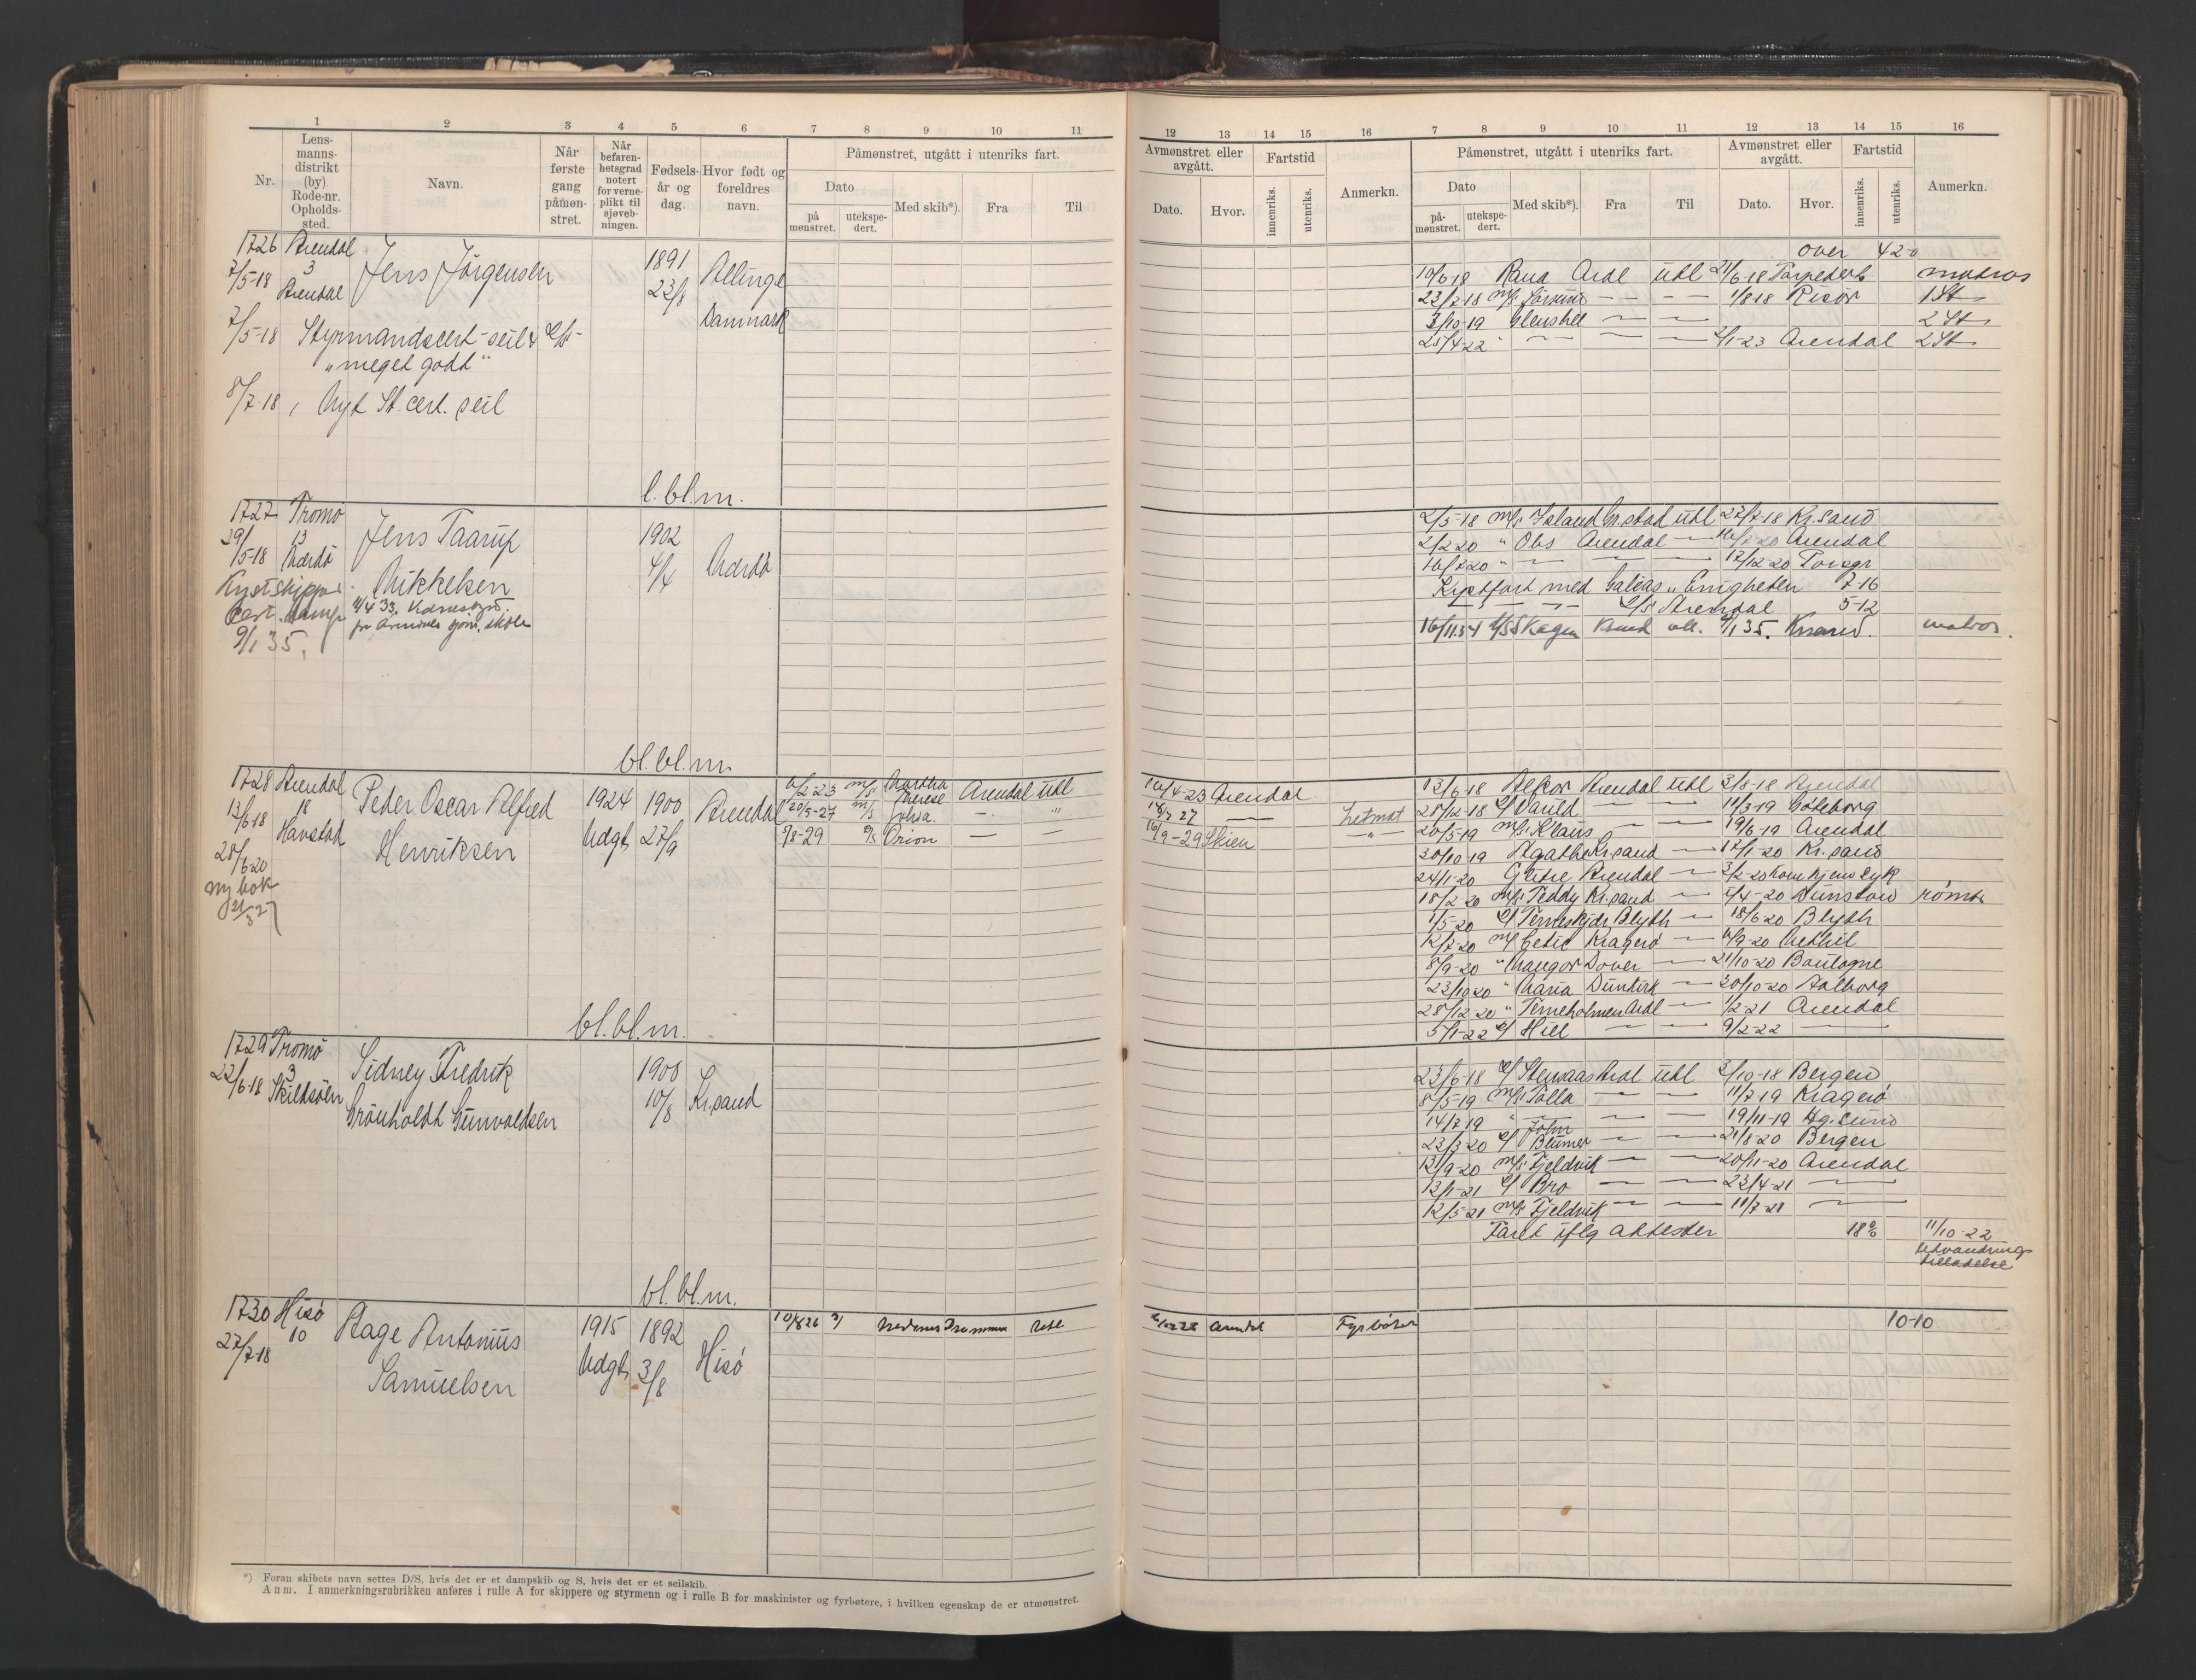 1 2 3 4 5 6 7 8 9 10 11
Nr.
Lens-
manns-
distrikt
(by)
Rode-nr.
Opholds-
sted.
Navn.
Når
første
gang
påmøn-
stret.
Når
befaren-
hetsgrad
notert
for verne-
plikt til
sjøveb-
ningen.
Fødsels-
år og
dag.
Hvor født og
foreldres
navn.
Påmønstret, utgått i utenriks fart.
Dato
på
mønstret.
utekspe-
dert.
Med skib*).
Fra
Til
12 13 14 15 16 7 8 9 10 11 12 13 14 15 16
Avmønstret eller
avgått.
Dato.
Hvor.
Fartstid
innenriks.
utenriks.
Anmerkn.
Påmønstret, utgått i utenriks fart.
Dato
på-
mønstret.
utekspe-
dert.
Med skib*).
Fra
Til
Avmønstret eller
avgått.
Dato.
Hvor.
Fartstid
innenriks.
utenriks.
Anmerkn.
1726 Arendal
7/5-18 3
Arendal
Jens Jörgensen
1891
23/8
Allinge
Danmark
7/5-18 Styrmandscert-seil &
"meget godt"
8/7-18, Nyt St. cert. seil
over 42-0
10/6 18 Rana Ardl Utl 21/6-18 matros
23/7-18 M/s — — 1/8 18 Risør 1 St
3/10-19 — — 2 St
25/4-22 — — 2/1-23 Arendal 2 St
l. bl. m.
1727 Tromø
29/5-18 13
Mærdø
Jens Taarup
Mikkelsen
1902
4/4
Mærdø
Kystskipper
Cert. damp
9/1 35.
2/5-18 M/s Utl 27/7-18 Kr.sand
2/2 20 " Obs Arendal — Arendal
16/7 20 " — — — 17/12 20 Porsgr
Kystfart med Galeas "Enigheten 7-16
Arendal 5-12
16/11 34 Skagen matros.
bl. bl. m.
1728 Arendal
13/6 18 18
Havstad
28/6 20
ny bok
21/3 27
Peder Oscar Alfred
Henriksen
1924
Udgt.
1900
27/9
Arendal
6/2-23 M/s Martha Therese Arendal Utl
20/5-27 M/s Sylvia. — "
5/8-29 Orion — —
10/4-23 Arendal
18/7 27 — Letmat
16/9-29 Skien — " —
13/6-18 Alkor Arendal Utl 3/8-18 Arendal
28/12-18 Varild — — 11/3-19 Göteborg
20/5-19 M/s Klaus — — 19/6-19 Arendal
30/10-19 Agathe Kr.sand — 17/1-20 Kr.sand
24/1-20 Arendal — 3/2-20
18/2 20 M/s Teddy Kr.sand — 5/4-20 rømt
1/5-20 Terneskjær Blyth — 18/6 20 Blyth
12/7-20 M/s Kragerø — 6/9-20 Methil
8/9-20 " Dover — 21/10-20 Boulogne
23/10 20 " Maria Dunkirk — 30/10-20 Aalborg
28/12 20 " Terneholmen Ardl — 1/2-21 Arendal
5/1-22 Hill — — 9/2-22 —
bl. bl. m.
1729 Tromø
22/6-18 3
Skildsöen
Sidney Fredrik
Grönholdt Gunvaldsen
1900
10/8
Kr.sand
23/6-18 Stenaas Ardl Utl 3/10-18 Bergen
8/5-19 M/s Tolla — — 11/7-19 Kragerö
14/7 19 " — — — 19/11-19 Hg.sund
23/3 20 John Blumer — — 21/8-20 Bergen
13/9-20 M/s Fjeldvik — — 20/11-20 Arendal
13/1-21 Bro — — 23/4-21 —
12/5-21 M/s Fjeldvik — — 11/7-21 —
Fart iflg attester 18 11/10-22
Udvandrings
tilladelse
bl. bl. m.
1730 Hisø
27/7-18 10
Aage Antonius
Samuelsen
1915
Udgt.
1892
3/8
Hisö
10/8 26 Nedenes Drammen Utl
Arendal Fyrbøter 10-10
*) Foran skibets navn settes D/S, hvis det er et dampskib og S, hvis det er et seilskib.
Anm. I anmerkningsrubrikken anføres i rulle A for skippere og styrmenn og i rulle B for maskinister og fyrbøtere, i hvilken egenskap de er utmønstret.